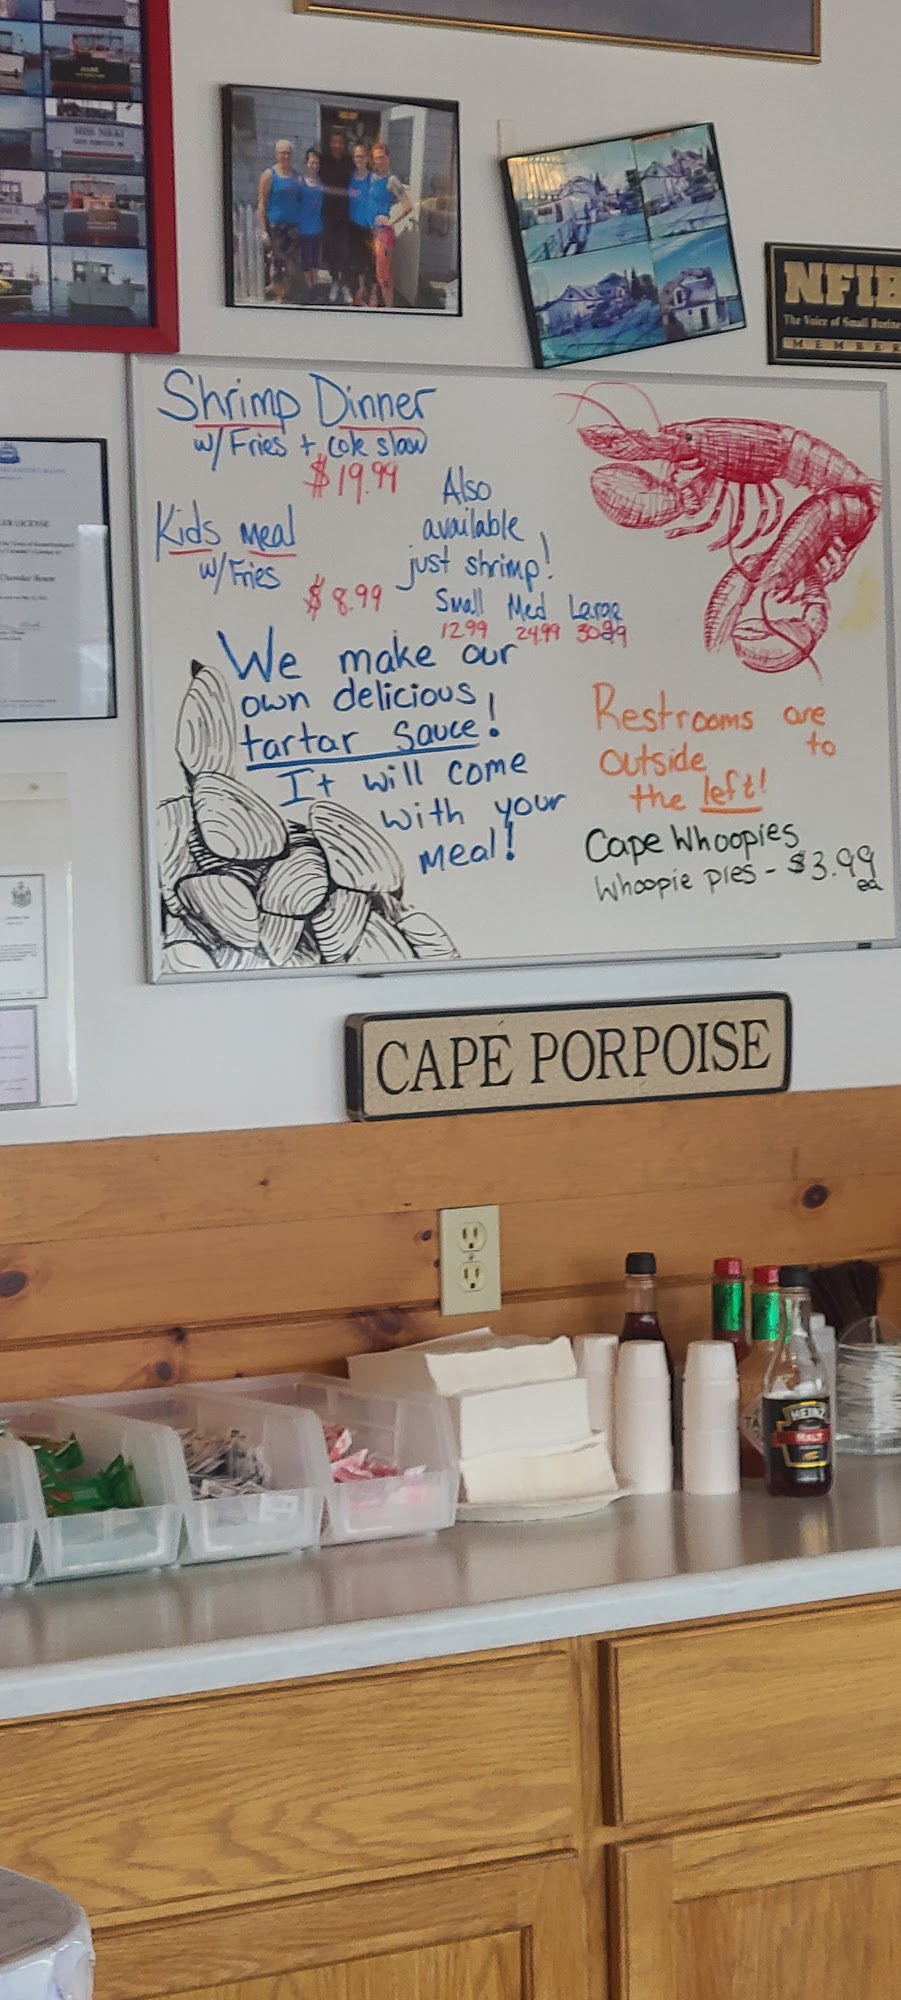 MISS NIKKI
NFIB
The Voice of Small Business
MEMBER
Shrimp Dinner
w/Fries + cole slaw
$19.99
Kids meal
w/Fries
$8.99
Also
available
just shrimp!
Small Med Large
12.99 24.99 30.99
We make our
own delicious
tartar sauce!
It will come
with your
meal!
Restrooms are
outside to
the left!
Cape Whoopies
Whoopie pies - $3.99
ea
CAPE PORPOISE
HEINZ
MALT